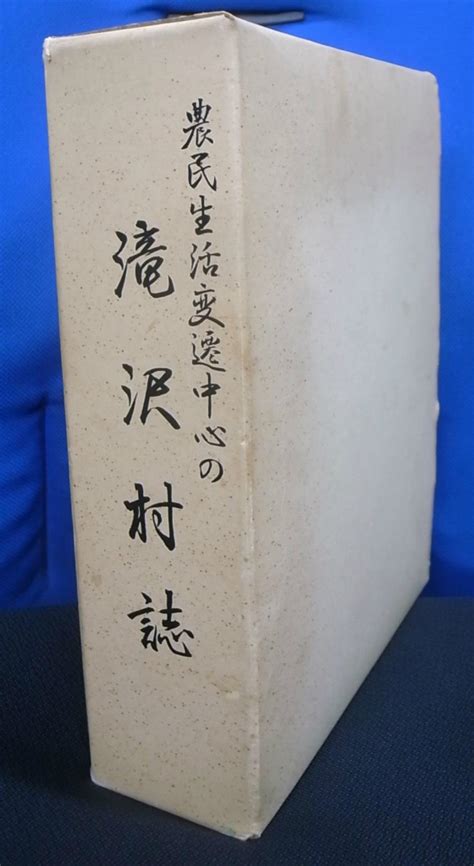 農民生活変遷中心の
滝沢村誌